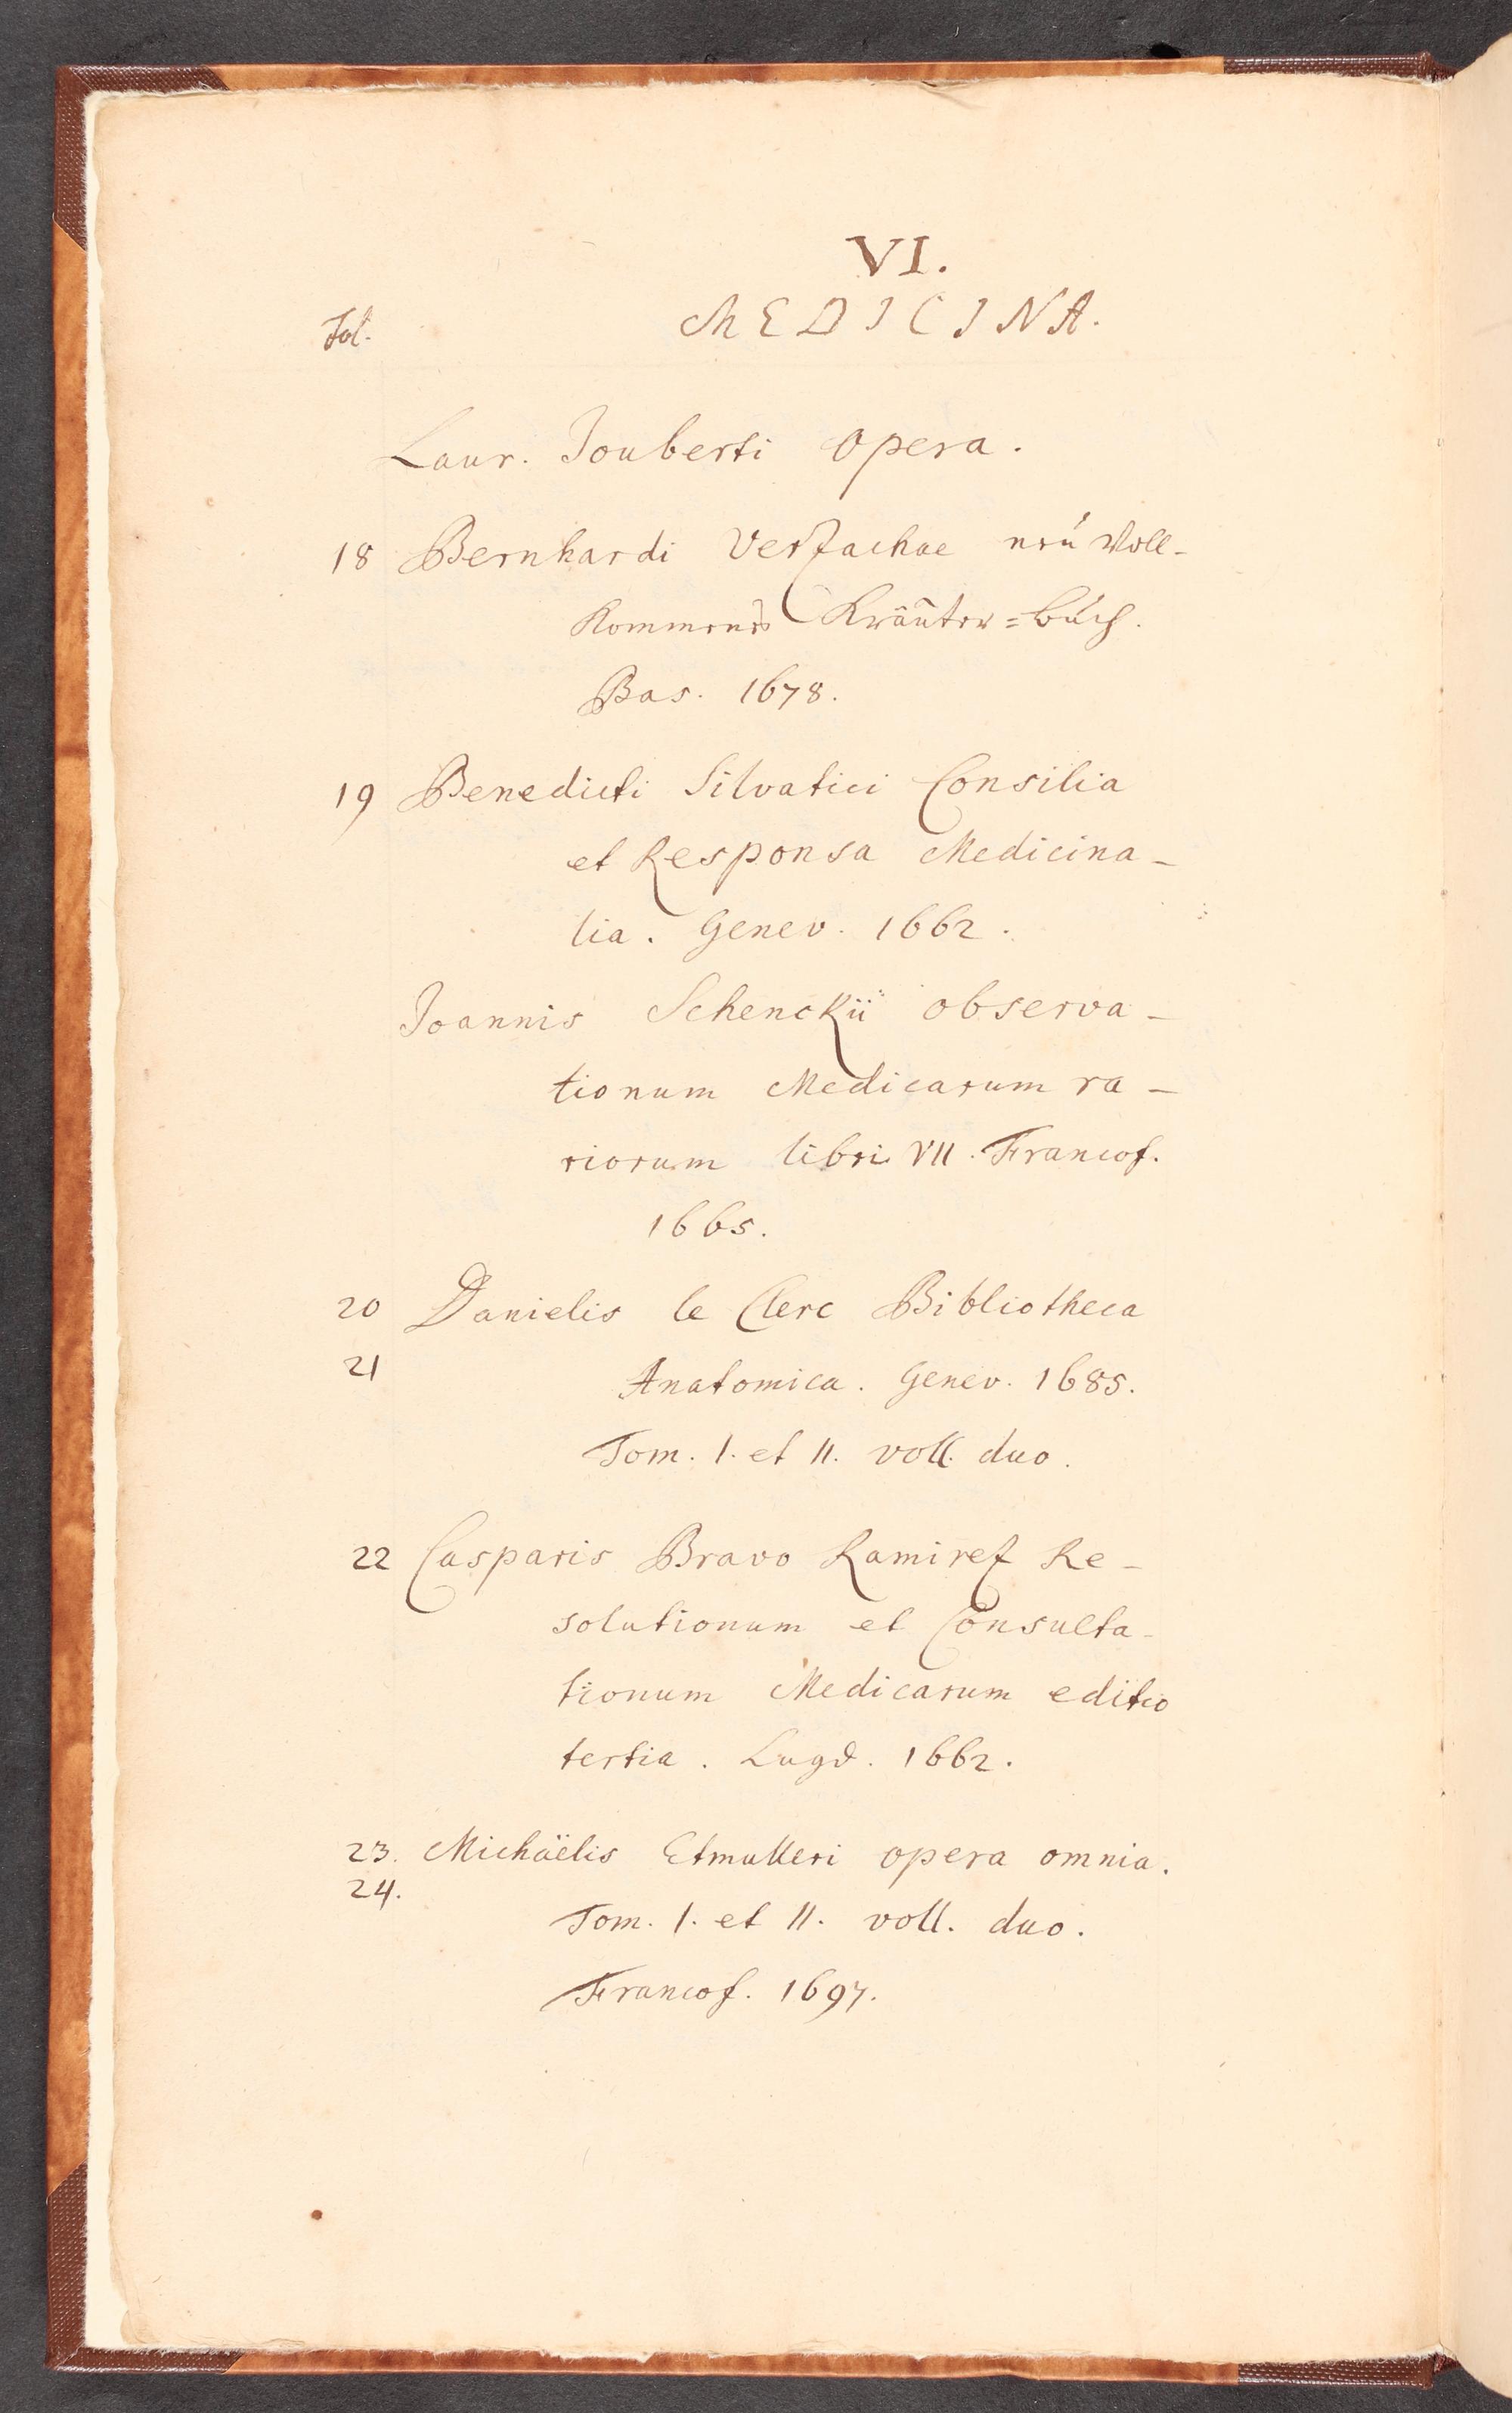 VI.
Fol. MEDICINA.
Laur. Jouberti Opera.
18 Bernhardi Verzachae neu Voll-
Kommenes Kräuter=Buch.
Bas. 1678.
19 Benedicti Silvatici Consilia
et Responsa Medicina-
lia. Genev. 1662.
Joannis Schenckii observa-
tionum Medicarum ra-
riorum libri VII. Francof.
1665.
20 Danielis le Clerc Bibliotheca
21 Anatomica. Genev. 1685.
Tom. I. et II. voll. duo.
22 Casparis Bravo Ramirez Re-
solutionum et Consulta-
tionum Medicarum editio
tertia. Lugd. 1662.
23. Michäelis Etmulleri opera omnia.
24.
Tom. I. et II. voll. duo.
Francof. 1697.